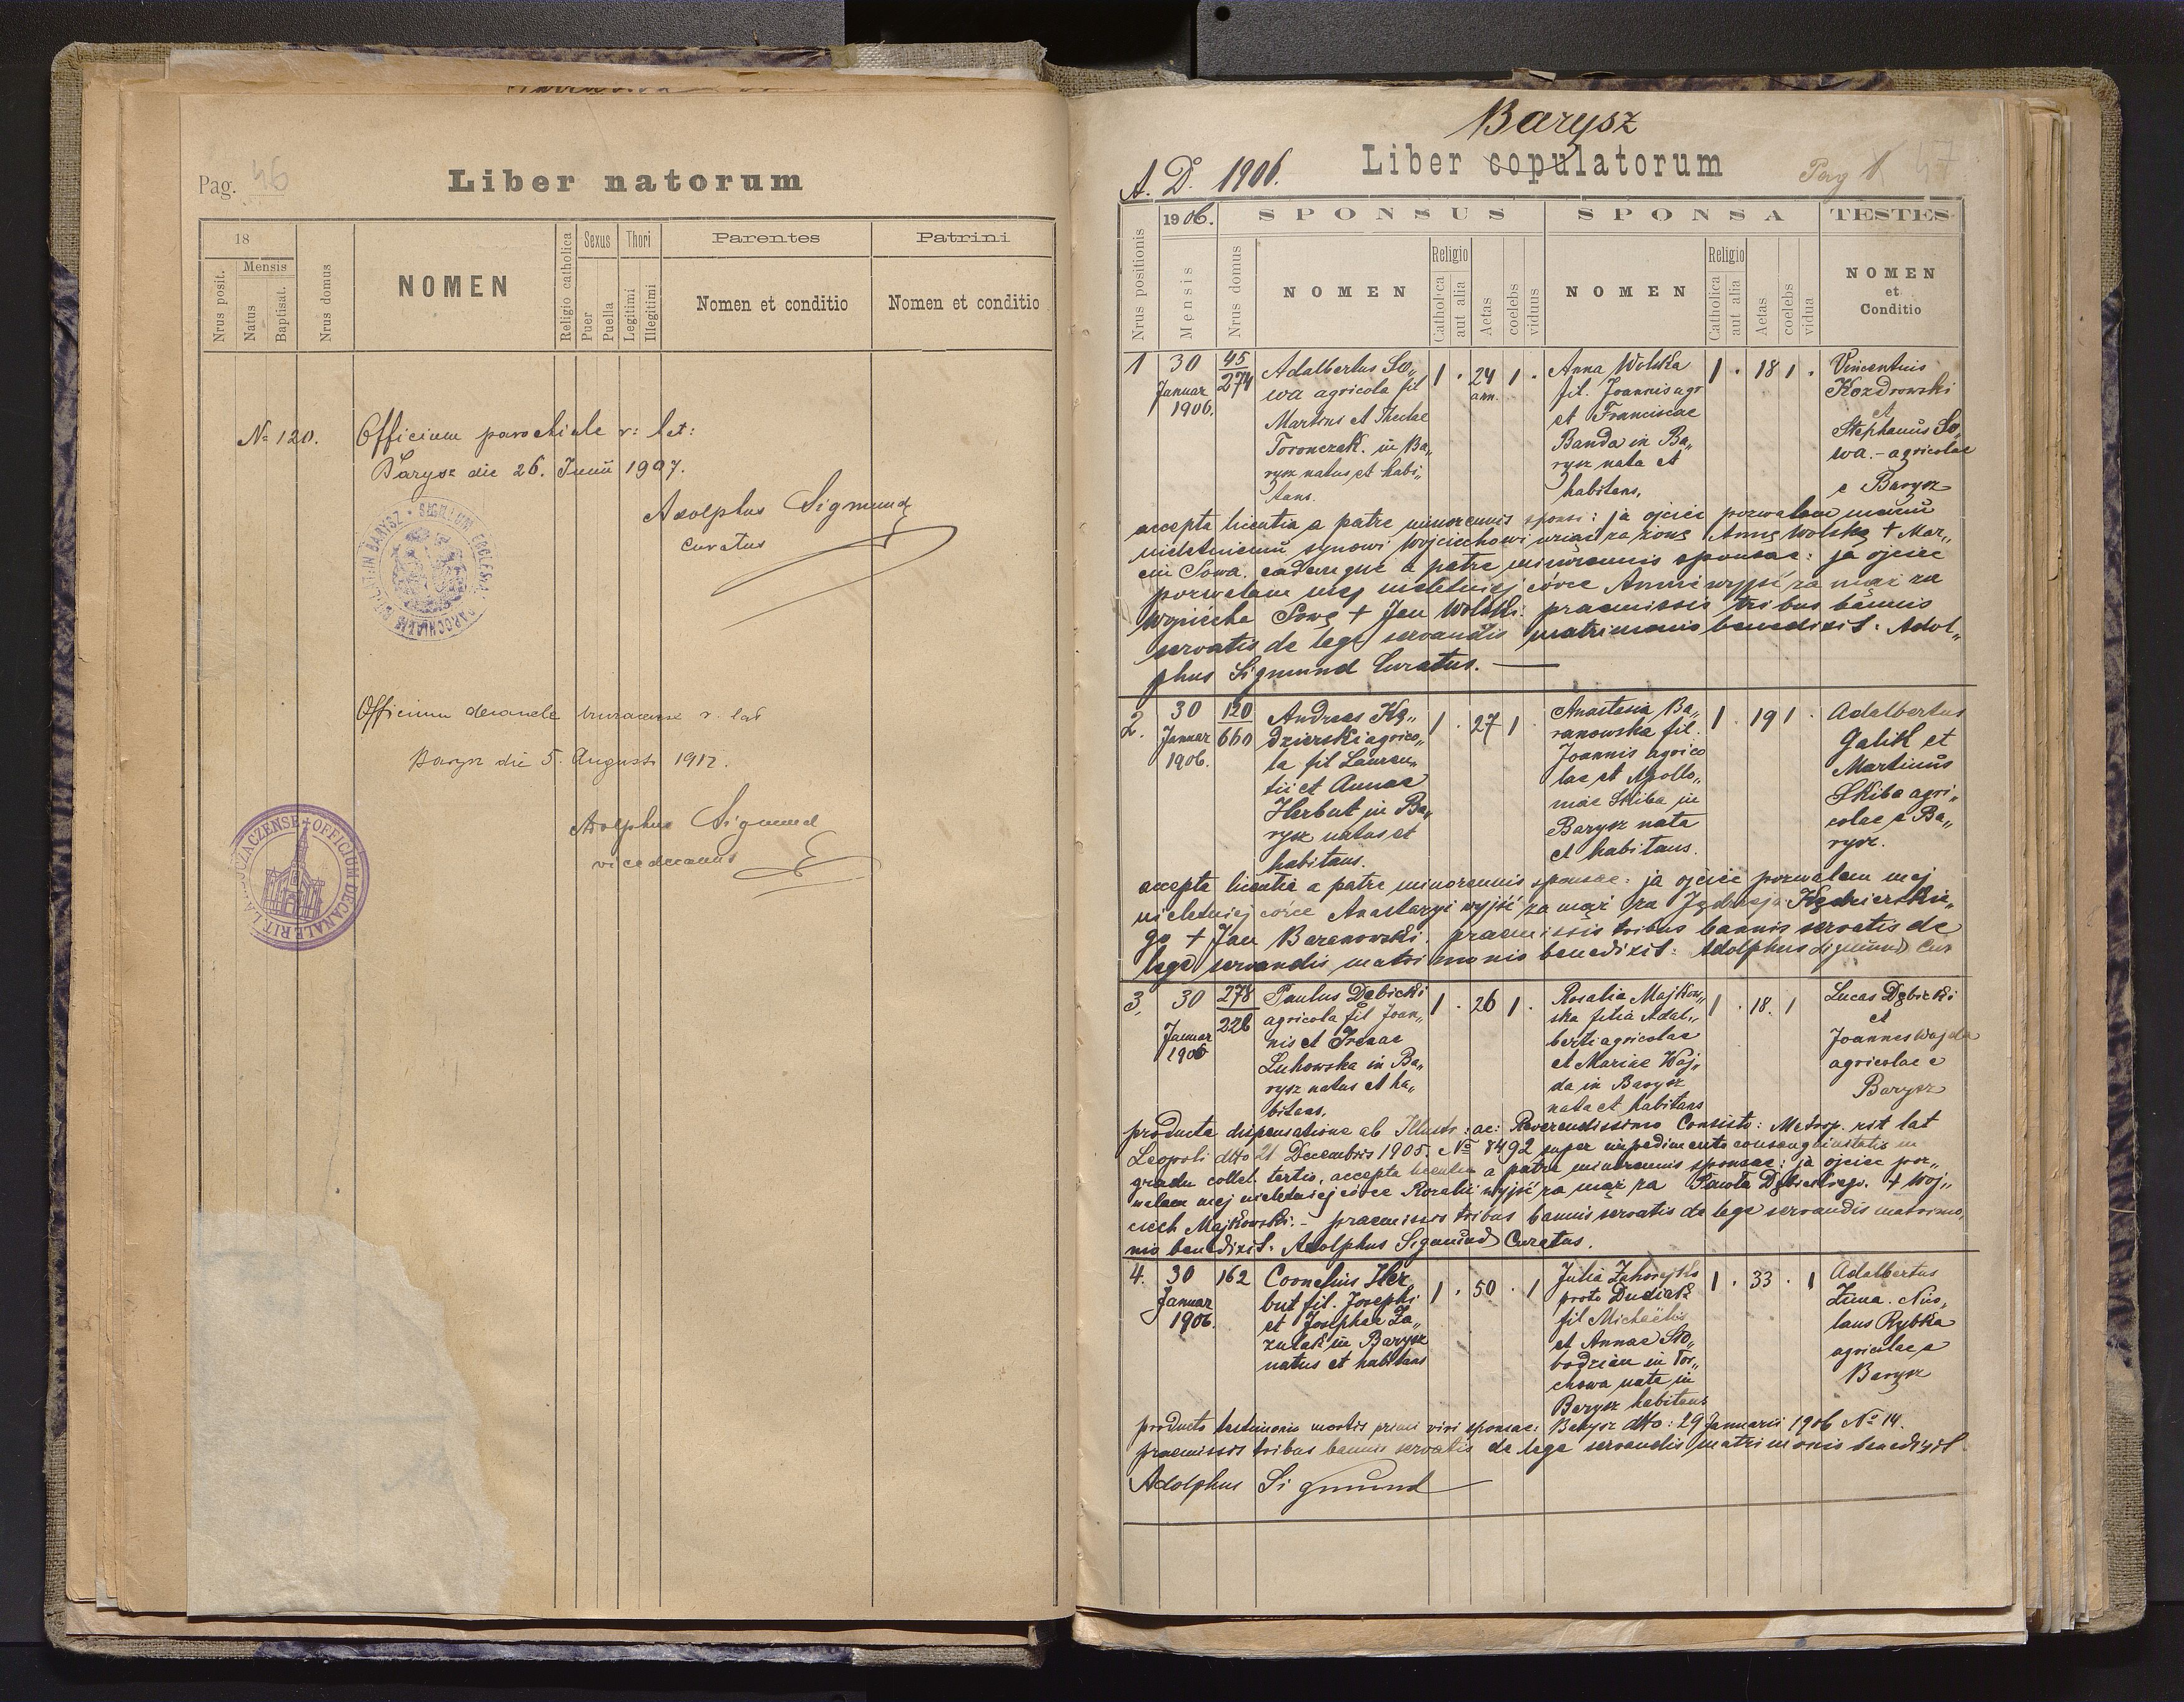 Pag. 46
Liber natorum
18
Mensis
Nrus posit.
Natus
Baptisat.
Nrus domus
NOMEN
Religio catholica
Sexus
Puer
Puella
Thori
Legitimi
Illegitimi
Parentes
Nomen et conditio
Patrini
Nomen et conditio
No 120.
Officium parochiale r: lat:
Barysz die 26. Junii 1907.
Adolphus Sigmund
Curatus
Officium decanale r. lat
Barysz die 5. Augusti 1912.
Adolphus Sigmund
vicedecanus
OFFICIUM DECANALE RIT. LAT. BUCZACZENSE
Barysz
A. D. 1906.
Liber copulatorum
Pag 1 47
Nrus positionis
1906.
Mensis
SPONSUS
Nrus domus
NOMEN
Religio
Catholica
aut alia
Aetas
coelebs
viduus
SPONSA
NOMEN
Religio
Catholica
aut alia
Aetas
coelebs
vidua
TESTES
NOMEN
et
Conditio
1
30
Januar
1906.
45
274
Adalbertus So„
wa agricola fil
Martini et Theclae
Toronczak. in Ba„
rysz natus et habi„
tans.
1 . 24 1 .
ann.
Anna Wolska
fil. Joannis agr
et Franciscae
Banda in Ba„
rysz nata et
habitans.
1 . 18 1 .
Vincentius
Kozdrowski
et
Stephanus So„
wa. - agricolae
e Barysz
accepta licentia a patre minorennis sponsi: ja ojciec pozwalam memu
nieletniemu synowi Wojciechowi wziąć za żonę Annę Wolską + Mar„
cin Sowa. eademque a patre minorennis sponsae: ja ojciec
pozwalam mej nieletniej córce Annie wyjść za mąż za
Wojciecha Sowę + Jan Wolski. praemissis tribus bannis
servatis de lege servandis matrimonio benedixit: Adol„
phus Sigmund Curatus.
2.
30
Januar
1906.
120
660
Andreas Kę„
dzierski agrico„
la fil Lauren„
tii et Annae
Herbut in Ba„
rysz natus et
habitans.
1 . 27 1 .
Anastasia Ba„
ranowska fil.
Joannis agrico
lae et Apollo„
niae Skiba in
Barysz nata
et habitans.
1 . 19 1 .
Adalbertus
Galik et
Martinus
Skiba agri„
colae e Ba„
rysz.
accepta licentia a patre minorennis sponsae: ja ojciec pozwalam mej
nieletniej córce Anastazyi wyjść za mąż za Jędrzeja Kędzierskie„
go + Jan Baranowski. praemissis tribus bannis servatis de
lege servandis matrimonio benedixit: Adolphus Sigmund Cur
3.
30
Januar
1906
278
226
Paulus Dębicki
agricola fil Joan„
nis et Irenae
Luhowska in Ba„
rysz natus et ha„
bitans.
1 . 26 1 .
Rosalia Majkow„
ska filia Adal„
berti agricolae
et Mariae Waj„
da in Barysz
nata et habitans
1 . 18. 1
Lucas Dębicki
et
Joannes Wajda
agricolae e
Barysz
producta dispensatione ab Illustr: ac: Reverendissimo Consisto: Metrop. rit lat
Leopoli dtto 21 Decembris 1905. No 8492 super impedimento consanguinitatis in
gradu collat. tertio, accepta licentia a patre minorennis sponsae: ja ojciec poz„
walam mej nieletniej córce Rozalii wyjść za mąż za Pawła Dębickiego. + Woj„
ciech Majkowski. - praemissis tribus bannis servatis de lege servandis matrimo„
nio benedixit: Adolphus Sigmund Curatus.
4.
30
Januar
1906.
162
Cornelius Her
but fil. Josephi
et Josephae Za„
zulak in Barysz
natus et habitans
1 . 50 . 1
Julia
proto Dudiak
fil Michaelis
et Annae Sło„
bodzian in
nata in
Barysz habitans
1 . 33 . 1
Adalbertus
Zima. Nico„
laus Rybka
agricolae e
Barysz
producto testimonio mortis primi viri sponsae: Barysz dtto: 29 Januarii 1906 No 14.
praemissis tribus bannis servatis de lege servandis matrimonio benedixit
Adolphus Sigmund